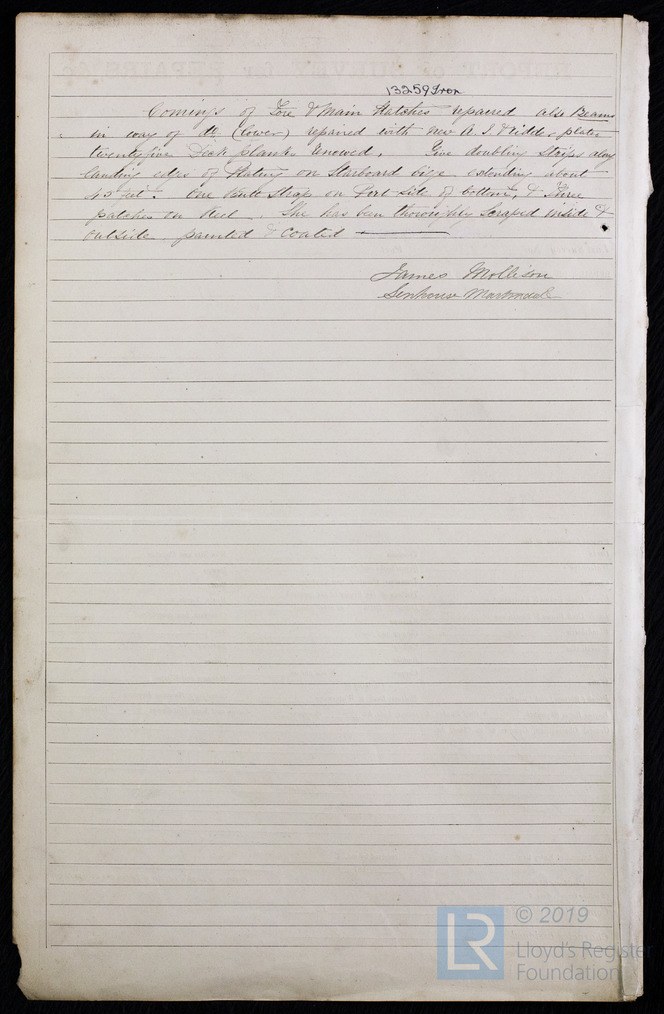 13259 Iron
Comings of Fore & Main Hatches repaired also Beams
in way of do (lower) repaired with new A. I. & plates
twentyfive Deck planks renewed. Five doubling strips along
landing edges of plating on Starboard bilge extending about
feet. One Butt Strap on Port side of bottom, & Three
patches on Keel. She has been thoroughly Scraped inside &
outside painted & Coated
James Mollison
Senhouse Martindale
© 2019
LR
Lloyd's Register
Foundation